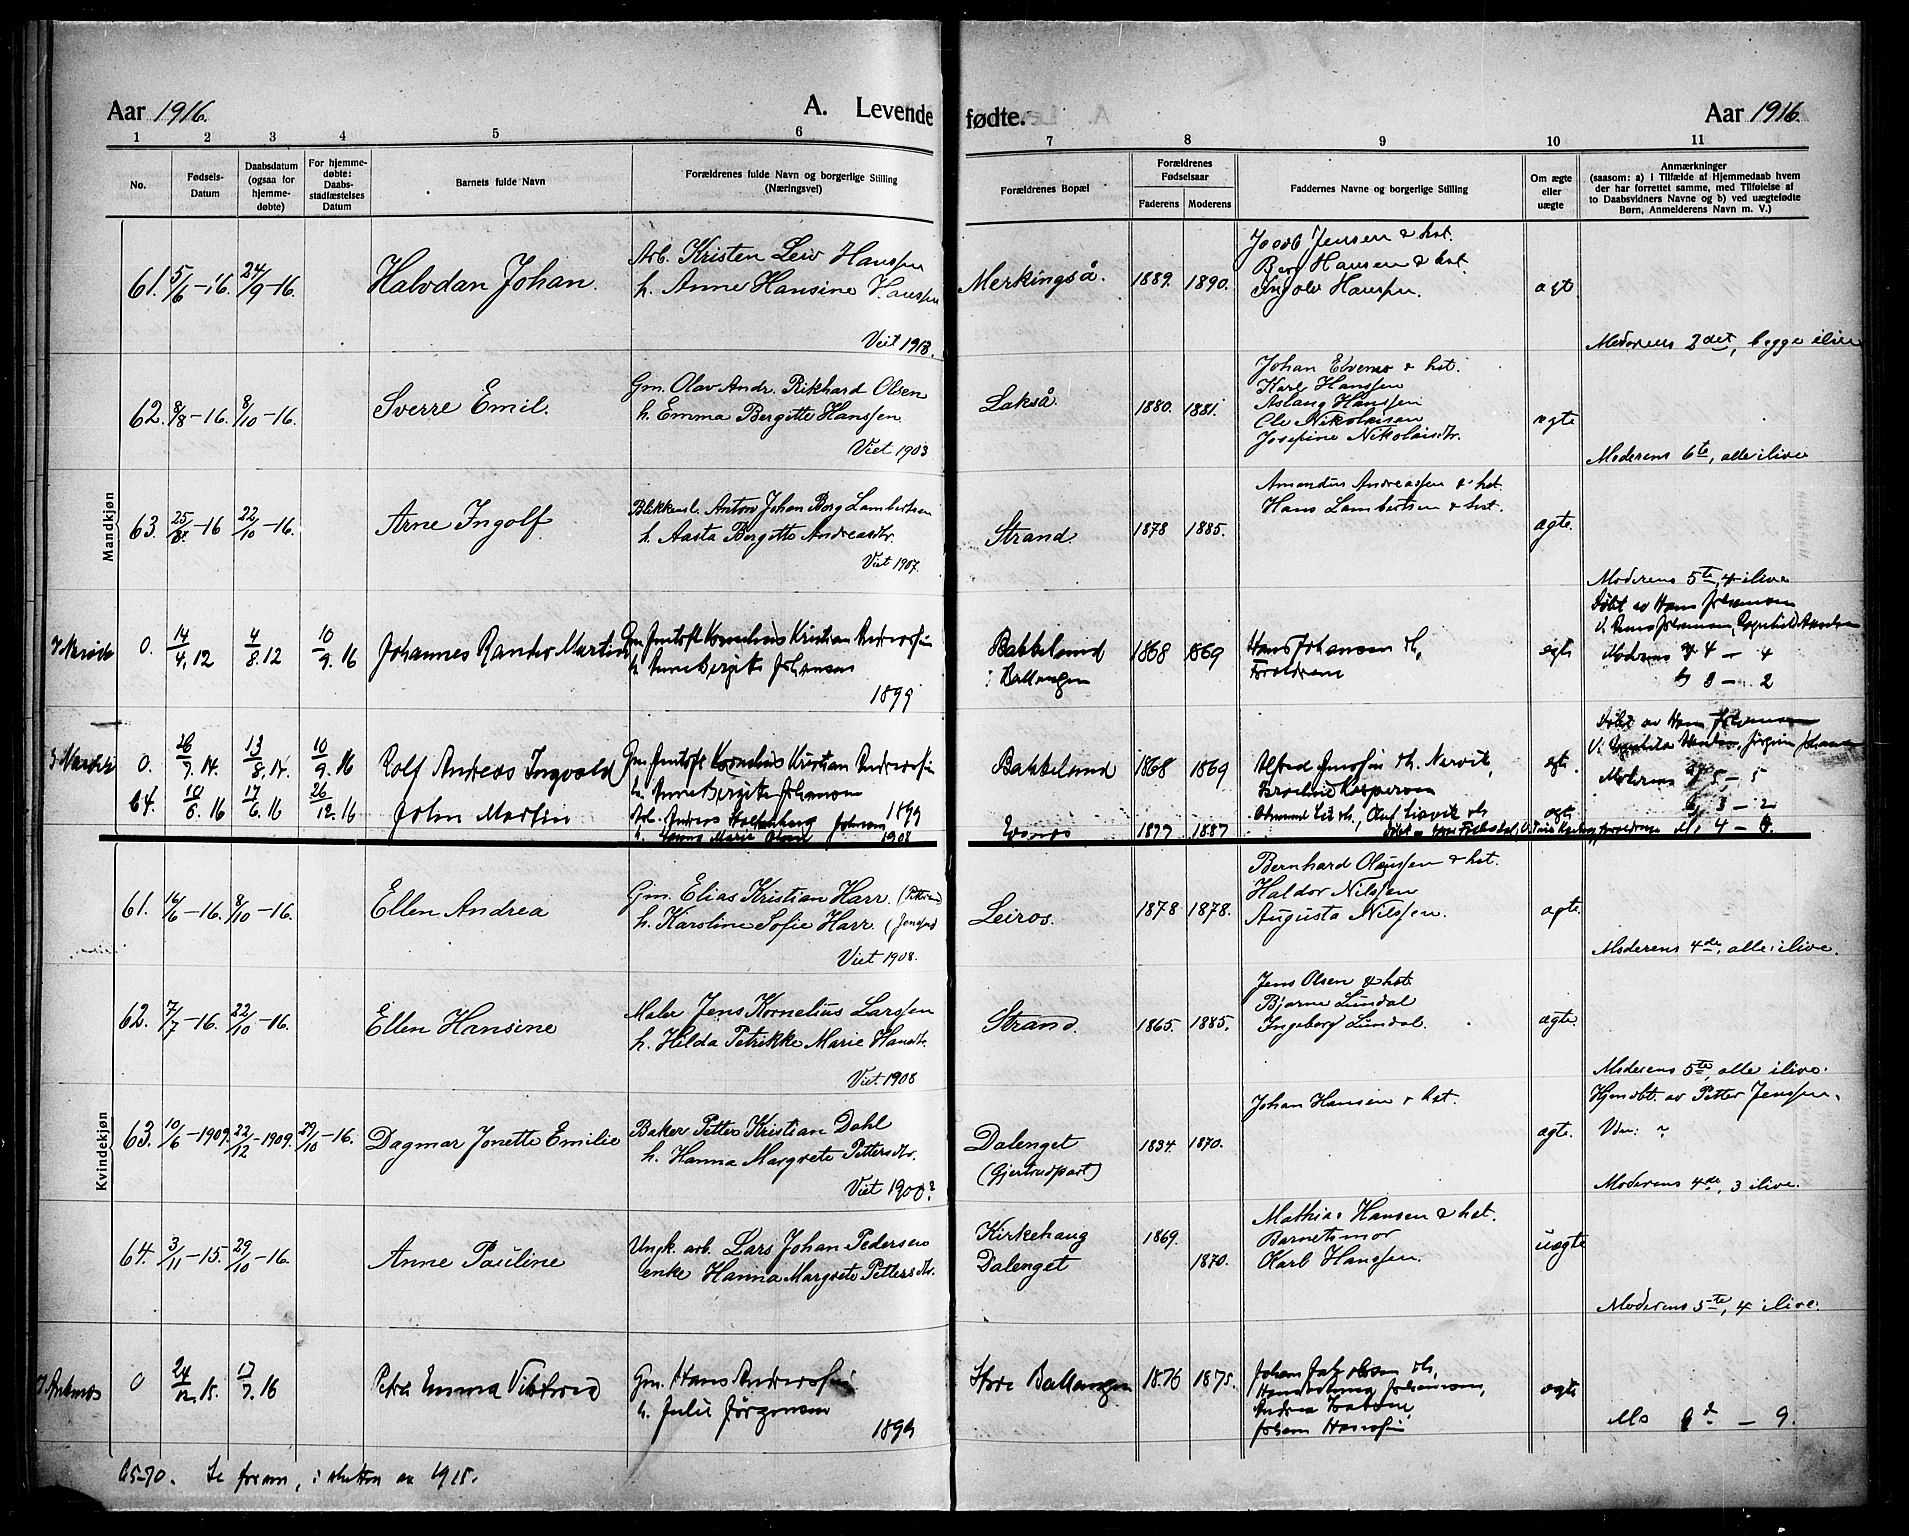 Aar 1916.
A. Levende fødte.
Aar 1916.
1 2 3 4 5 6 7 8 9 10 11
No.
Fødsels-
Datum
Daabsdatum
(ogsaa for
hjemme-
døbte)
For hjemme-
døbte:
Daabs-
stadfæstelses
Datum
Barnets fulde Navn
Forældrenes fulde Navn og borgerlige Stilling
(Næringsvei)
Forældrenes Bopæl
Forældrenes
Fødselsaar
Faderens Moderens
Faddernes Navne og borgerlige Stilling
Om ægte
eller
uægte
Anmærkninger
(saasom: a) i Tilfælde af Hjemmedaab hvem
der har forrettet samme, med Tilføielse af
to Daabsvidners Navne og b) ved uægtefødte
Børn, Anmelderens Navn m. V.)
Mandkjøn
61. 5/6-16. 24/9-16. Halvdan Johan.
Arb. Kristen Leiv Hanssen
h. Anne Hansine Hanssen
Viet 1913.
Merkingså. 1889. 1890.
Jacob Jensen & hst.
Berg Hansen & hst.
Ingolv Hanssen.
ægt.
Moderens 2det, begge ilive
62. 8/8-16. 8/10-16. Sverre Emil.
Gm. Olav Andr. Rikhard Olsen
h. Emma Bergitte Hanssen.
Viet 1903
Lakså. 1880. 1881.
Johan Elvenes & hst.
Karl Hanssen
Aslaug Hanssen
Ole Nikolaisen
Josefine Nikolaisdtr.
ægte
Moderens 6te, alle ilive
63. 25/8-16 22/10-16. Arne Ingolf
Blikkensl. Anton Johan Borg Lambertsen
h. Aasta Bergitte Andreasdtr.
Viet 1907.
Strand. 1878 1885.
Amandus Andreassen & hst.
Hans Lambertsen & hst.
ægte.
Moderens 5te, 4 ilive
0. 14/4.12 4/8.12 10/9.16 Johannes Rander Martin
Gm Kornelius Kristian Anderssen
h. Anne Bergite Johansen
1899
Bakkeland
i Ballangen
1868 1869
Hans Johansen
Foreldrene
ægte
Døbt av Hans Johansen
Moderens 4 – 4
3 – 2
0. 26/7.14. 13/8.14. 10/9.16 Rolf Andreas Ingvald
Gm Kornelius Kristian Anderssen
h. Anne Bergite Johansen
1899
Bakkeland 1868 1869
Alfred Jenssen Narvik,
ægte
Døbt av Hans Johansen
Moderens 5 – 5
3 – 2
64. 10/6.16 17/6.16 26/12.16 John Martin
Arb. Anders Johnsen
Marie Olsen 1908
Evenes 1877 1887
ægte
M. 4 –
Kvindekjøn
61. 16/6-16. 8/10-16. Ellen Andrea
Gm. Elias Kristian Harr.
h. Karoline Sofie Harr.
Viet 1908.
Leiros. 1878 1878.
Bernhard Olaussen & hst.
Haldor Nilssen
Augusta Nilssen.
ægte
Moderens 4de, alle ilive.
62. 7/7-16. 22/10-16. Ellen Hansine
Maler Jens Kornelius Larssen
h. Hilda Petrikke Marie Hansdtr.
Viet 1908
Strand. 1865. 1885.
Jens Olsen & hst.
Bjarne Lundal
Ingeborg Lundal.
ægte.
Moderens 5te, alle ilive.
63. 10/6-1909. 22/12-1909. 29/10-16. Dagmar Jonette Emilie
Baker Petter Kristian Dahl
h. Hanna Margrete Pettersdtr.
Viet 1900?
Dalenget
(Gjertrudpart)
1834. 1870.
Johan Hansen & hst.
ægte.
Hjmdbt. av Petter Jenssen.
Vdn: ?
Moderens 4de, 3 ilive.
64. 3/11-15. 29/10-16. Anne Pauline
Ungk. arb. Lars Johan Pedersen
enke Hanna Margrete Pettersdtr.
Kirkehaug 1869.
Dalenget 1870.
Mathias Hansen & hst.
Barnets mor
Karl Hanssen.
uægte
Moderens 5te, 4 ilive.
0 24/12.15. 17/7.16 Petra Emma Viktoria
Gm. Hans Anderssen
h. Julie Jørgensen
1899
Store Ballangen 1876 1875.
Johan
Johansen,
Andrea
Johan Hanssen
ægte
Mo – 9.
65-70. Se foran, i slutten av 1915.